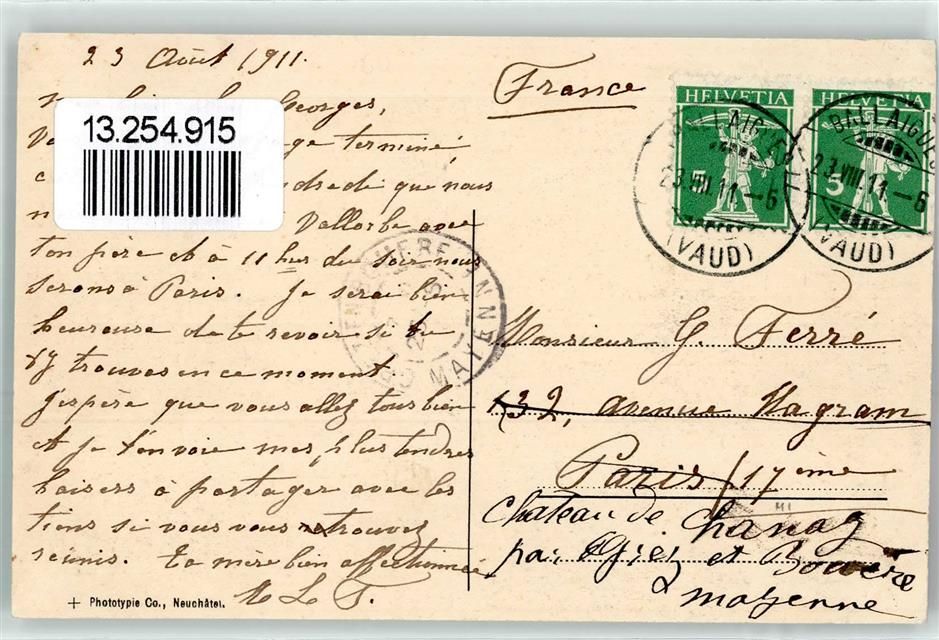 23 Août 1911.
Georges,
13.254.915
terminé
que nous
Vallorbe avec
ton père et à 11 hes du soir nous
serons à Paris. Je serai bien
heureuse de te revoir si tu
t'y trouves en ce moment.
J'espère que vous allez tous bien
et je t'envoie mes plus tendres
baisers à partager avec les
tiens si vous vous trouvez
réunis. ta mère bien affectionnée
+ Phototypie Co., Neuchâtel.
France
HELVETIA
HELVETIA
5
BALLAIGUES
23.VIII.11–6
(VAUD)
BALLAIGUES
23.VIII.11–6
(VAUD)
MAYENNE
Monsieur G. Ferré
132, avenue Wagram
Paris 17ème
Chateau de
par et
Mayenne